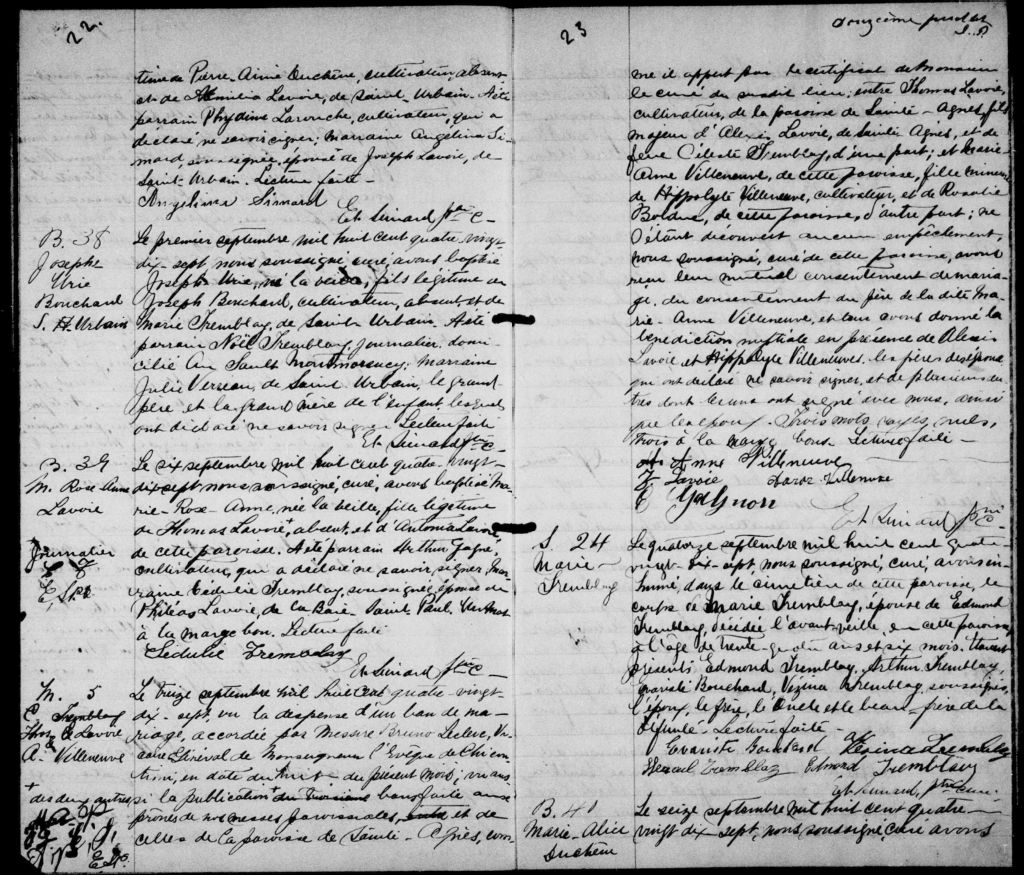 22.
time de Pierre-Aimé Duchêne, cultivateur, absent
et de Lavoie, de Saint-Urbain. A été
parrain Phydime Larouche, cultivateur, qui a
déclaré ne savoir signer; marraine Angélina Si-
mard soussignée, épouse de Joseph Lavoie, de
Saint-Urbain. Lecture faite -
Angelina Simard
Et Simard Ptre C-
B. 38
Joseph
Urie
Bouchard
S. H Urbain
Le premier septembre mil huit cent quatre vingt
dix-sept nous soussigné curé, avons baptisé
Joseph Urie, né la veille, fils légitime de
Joseph Bouchard, cultivateur, absent, et de
Marie Tremblay, de Saint-Urbain. A été
parrain Noël Tremblay, journalier, domi-
cilié Au Sault Montmorency; marraine
Julie Verreau, de Saint-Urbain, le grand
père et la grand'mère de l'enfant, lesquels
ont déclaré ne savoir signer Lecture faite
Et Simard Ptre C-
B. 39
M. Rose-Anne
Lavoie
Le six septembre mil huit cent quatre-vingt-
dix sept nous soussigné, curé, avons baptisé Ma-
rie-Rose-Anne, née la veille, fille légitime
de Thomas Lavoie + absent, et d' Lavoie,
de cette paroisse. A été parrain Arthur Gagné,
cultivateur, qui a déclaré ne savoir signer; mar-
raine Cédulie Tremblay, soussignée, épouse de
Philéas Lavoie, de la Baie Saint-Paul. Un mot
à la marge bon. Lecture faite
Cédulie Tremblay
Et Simard Ptre C
+ journalier
M. 5
Tremblay
Thos C Lavoie
&
A. Villeneuve
Le treize septembre mil huit cent quatre-vingt
dix-sept, vu la dispense d'un ban de ma-
riage, accordée par Messire Bruno Leclerc, Vi-
caire Général de Monseigneur l'Evêque de Chicou-
timi, en date du huit du présent mois; vu aus-
si la publication + bans faite aux
prônes de nos messes paroissiales, et de
celles de la paroisse de Sainte-Agnès, com-
+ des deux autres
23
douzième feuillet
me il appert par le certificat de Monsieur
le curé du susdit lieu; entre Thomas Lavoie,
cultivateur, de la paroisse de Sainte-Agnès, fils
majeur d'Alexis Lavoie, de Sainte Agnès, et de
feue Céleste Tremblay, d'une part; et Marie-
Anne Villeneuve, de cette paroisse, fille mineure
de Hippolyte Villeneuve, cultivateur, et de Rosalie
Bolduc, de cette paroisse, d'autre part; ne
s'étant découvert aucun empêchement,
nous soussigné, curé de cette paroisse, avons
reçu leur mutuel consentement de maria-
ge, du consentement du père de la dite Ma-
rie-Anne Villeneuve, et leur avons donné la
bénédiction nuptiale en présence de Alexis
Lavoie et Hippolyte Villeneuve, les pères des époux
qui ont déclaré ne savoir signer, et de plusieurs au-
tres dont uns ont signé avec nous, ainsi
que les époux. Trois mots rayés, nuls,
trois à la marge bons. Lecture faite -
Anne Villeneuve
T Lavoie Villeneuve
Gagnon
Et Simard Ptre
C-
S. 24
Marie
Tremblay
Le quatorze septembre mil huit cent quatre
vingt dix-sept, nous soussigné, curé, avons in-
humé, dans le cimetière de cette paroisse, le
corps de Marie Tremblay, épouse de Edmond
Tremblay, décédée l'avant-veille, en cette paroisse
à l'âge de trente- ans et six mois. Etaient
présents Edmond Tremblay, Arthur Tremblay
Evariste Bouchard, Vézina Tremblay, soussignés,
l'époux, le frère, l'oncle et le beau-frère de la
défunte. Lecture faite -
Evariste Bouchard Vezina Tremblay
Tremblay Edmond Tremblay
Et Simard, ptre cur.
B. 40
Marie-Alice
Duchêne
Le seize septembre mil huit cent quatre
vingt dix sept, nous soussigné, curé avons